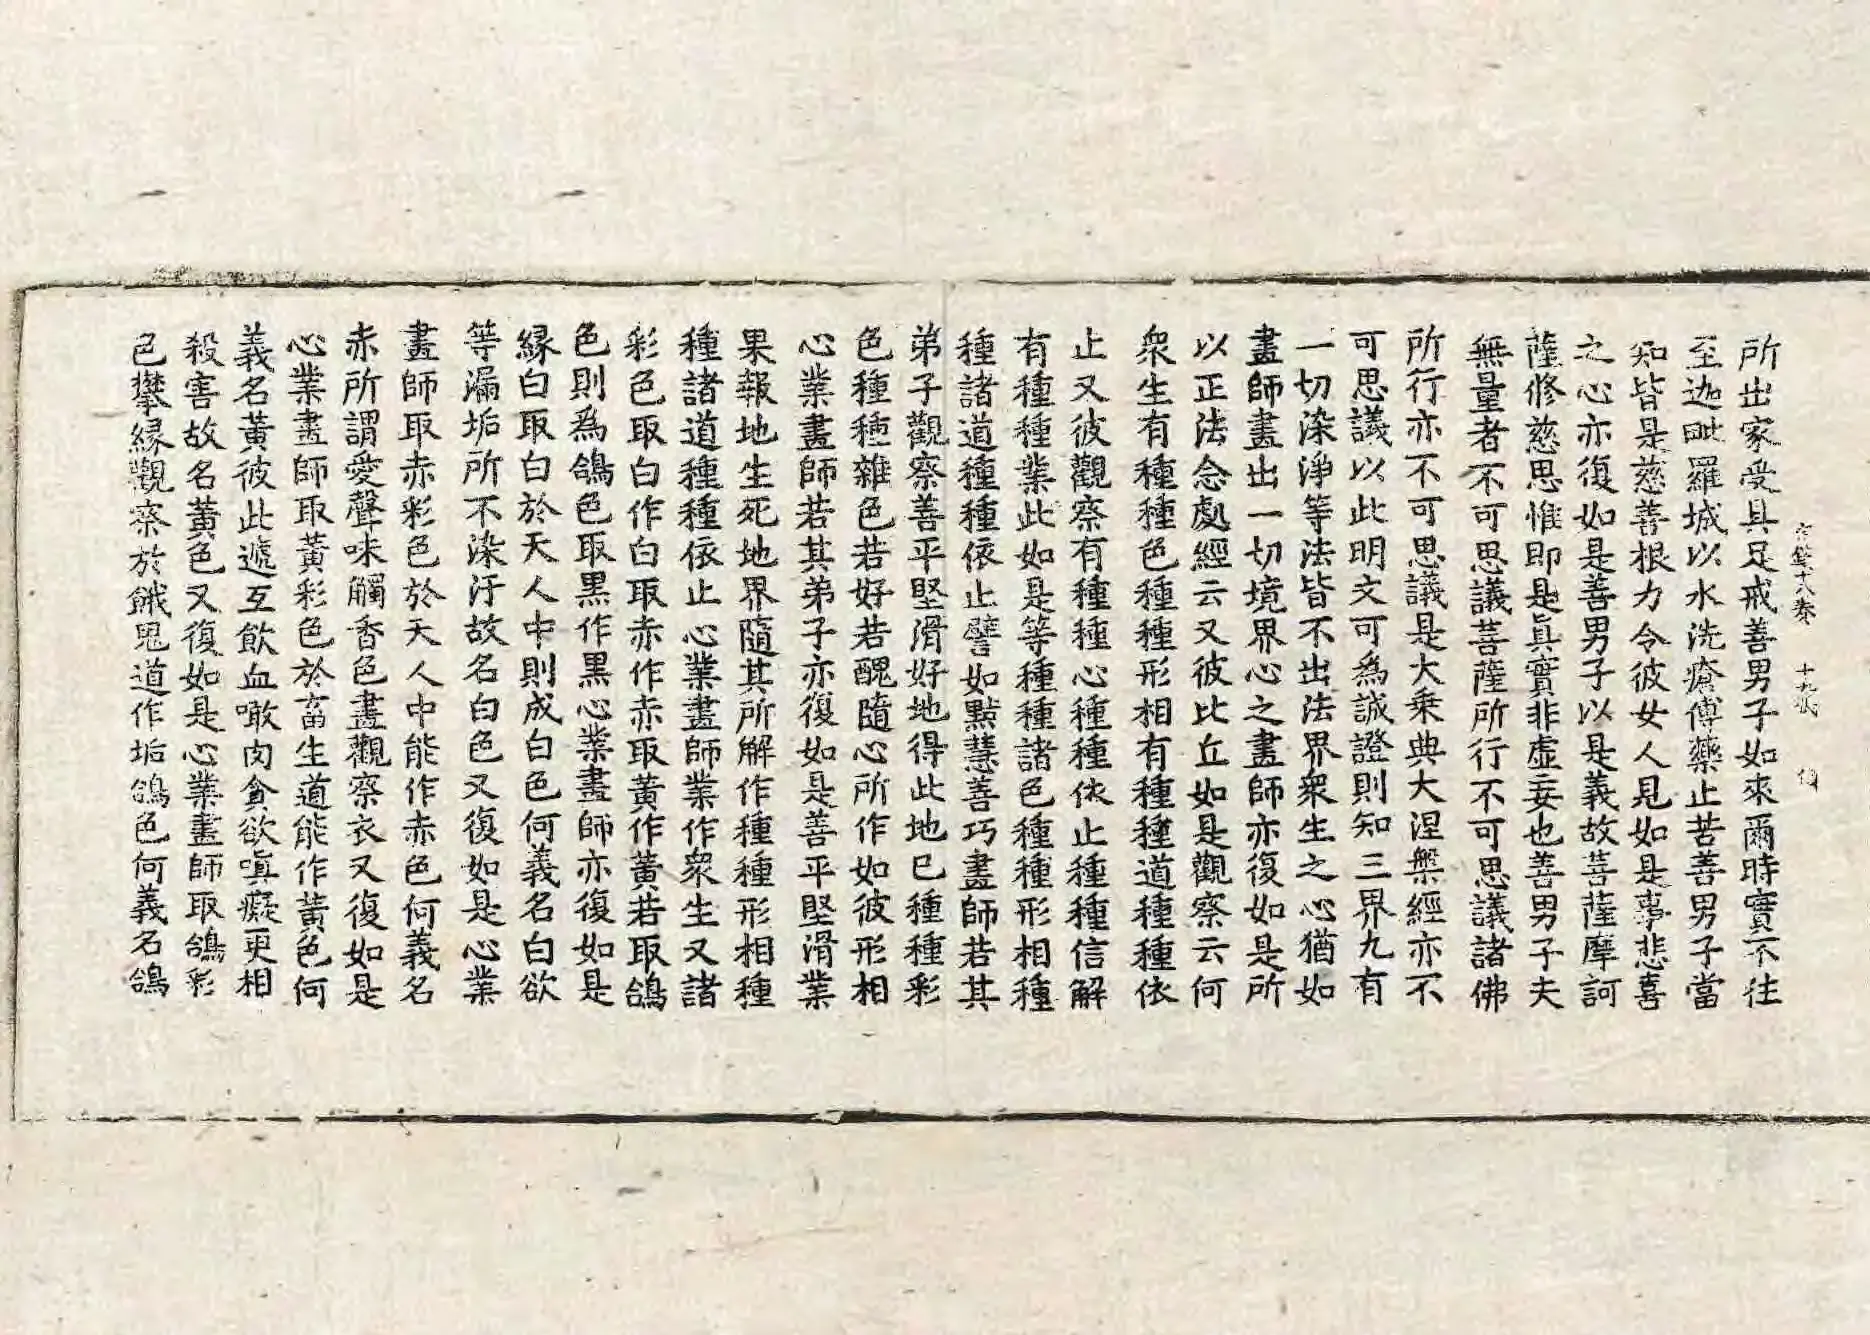 所出家受具足戒善男子如來爾時實不往
宗鏡十八卷 十九張
至迦毗羅城以水洗瘡傅藥止苦善男子當
知皆是慈善根力令彼女人見如是事悲喜
之心亦復如是善男子以是義故菩薩摩訶
薩修慈思惟即是真實非虛妄也善男子夫
無量者不可思議菩薩所行不可思議諸佛
所行亦不可思議是大乘典大涅槃經亦不
可思議以此明文可為誠證則知三界九有
一切染淨等法皆不出法界眾生之心猶如
畫師畫出一切境界心之畫師亦復如是所
以正法念處經云又彼比丘如是觀察云何
眾生有種種色種種形相有種種道種種依
止又彼觀察有種種心種種依止種種信解
有種種業此如是等種種諸色種種形相種
種諸道種種依止譬如黠慧善巧畫師若其
弟子觀察善平堅滑好地得此地已種種彩
色種種雜色若好若醜隨心所作如彼形相
心業畫師若其弟子亦復如是善平堅滑業
果報地生死地界隨其所解作種種形相種
種諸道種種依止心業畫師業作眾生又諸
彩色取白作白取赤作赤取黃作黃若取鴿
色則為鴿色取黑作黑心業畫師亦復如是
緣白取白於天人中則成白色何義名白欲
等漏垢所不染汙故名白色又復如是心業
畫師取赤彩色於天人中能作赤色何義名
赤所謂愛聲味觸香色畫觀察衣又復如是
心業畫師取黃彩色於畜生道能作黃色何
義名黃彼此遞互飲血噉肉貪欲嗔癡更相
殺害故名黃色又復如是心業畫師取鴿彩
色攀緣觀察於餓鬼道作垢鴿色何義名鴿